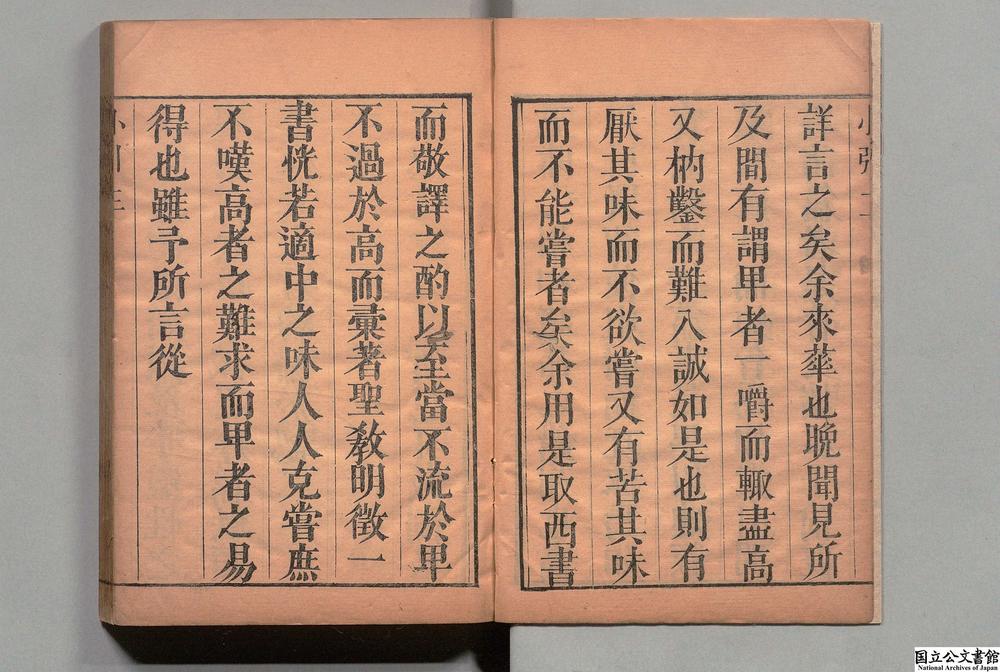 詳言之矣余來華也晚聞見所
及間有謂卑者一嚼而輙盡高
又枘鑿而難入誠如是也則有
厭其味而不欲嘗又有苦其味
而不能嘗者矣余用是取西書
而敬譯之酌以至當不流於卑
不過於高而彚著聖教明徵一
書恍若適中之味人人克嘗庶
不嘆高者之難求而卑者之易
得也雖予所言從
国立公文書館
National Archives of Japan